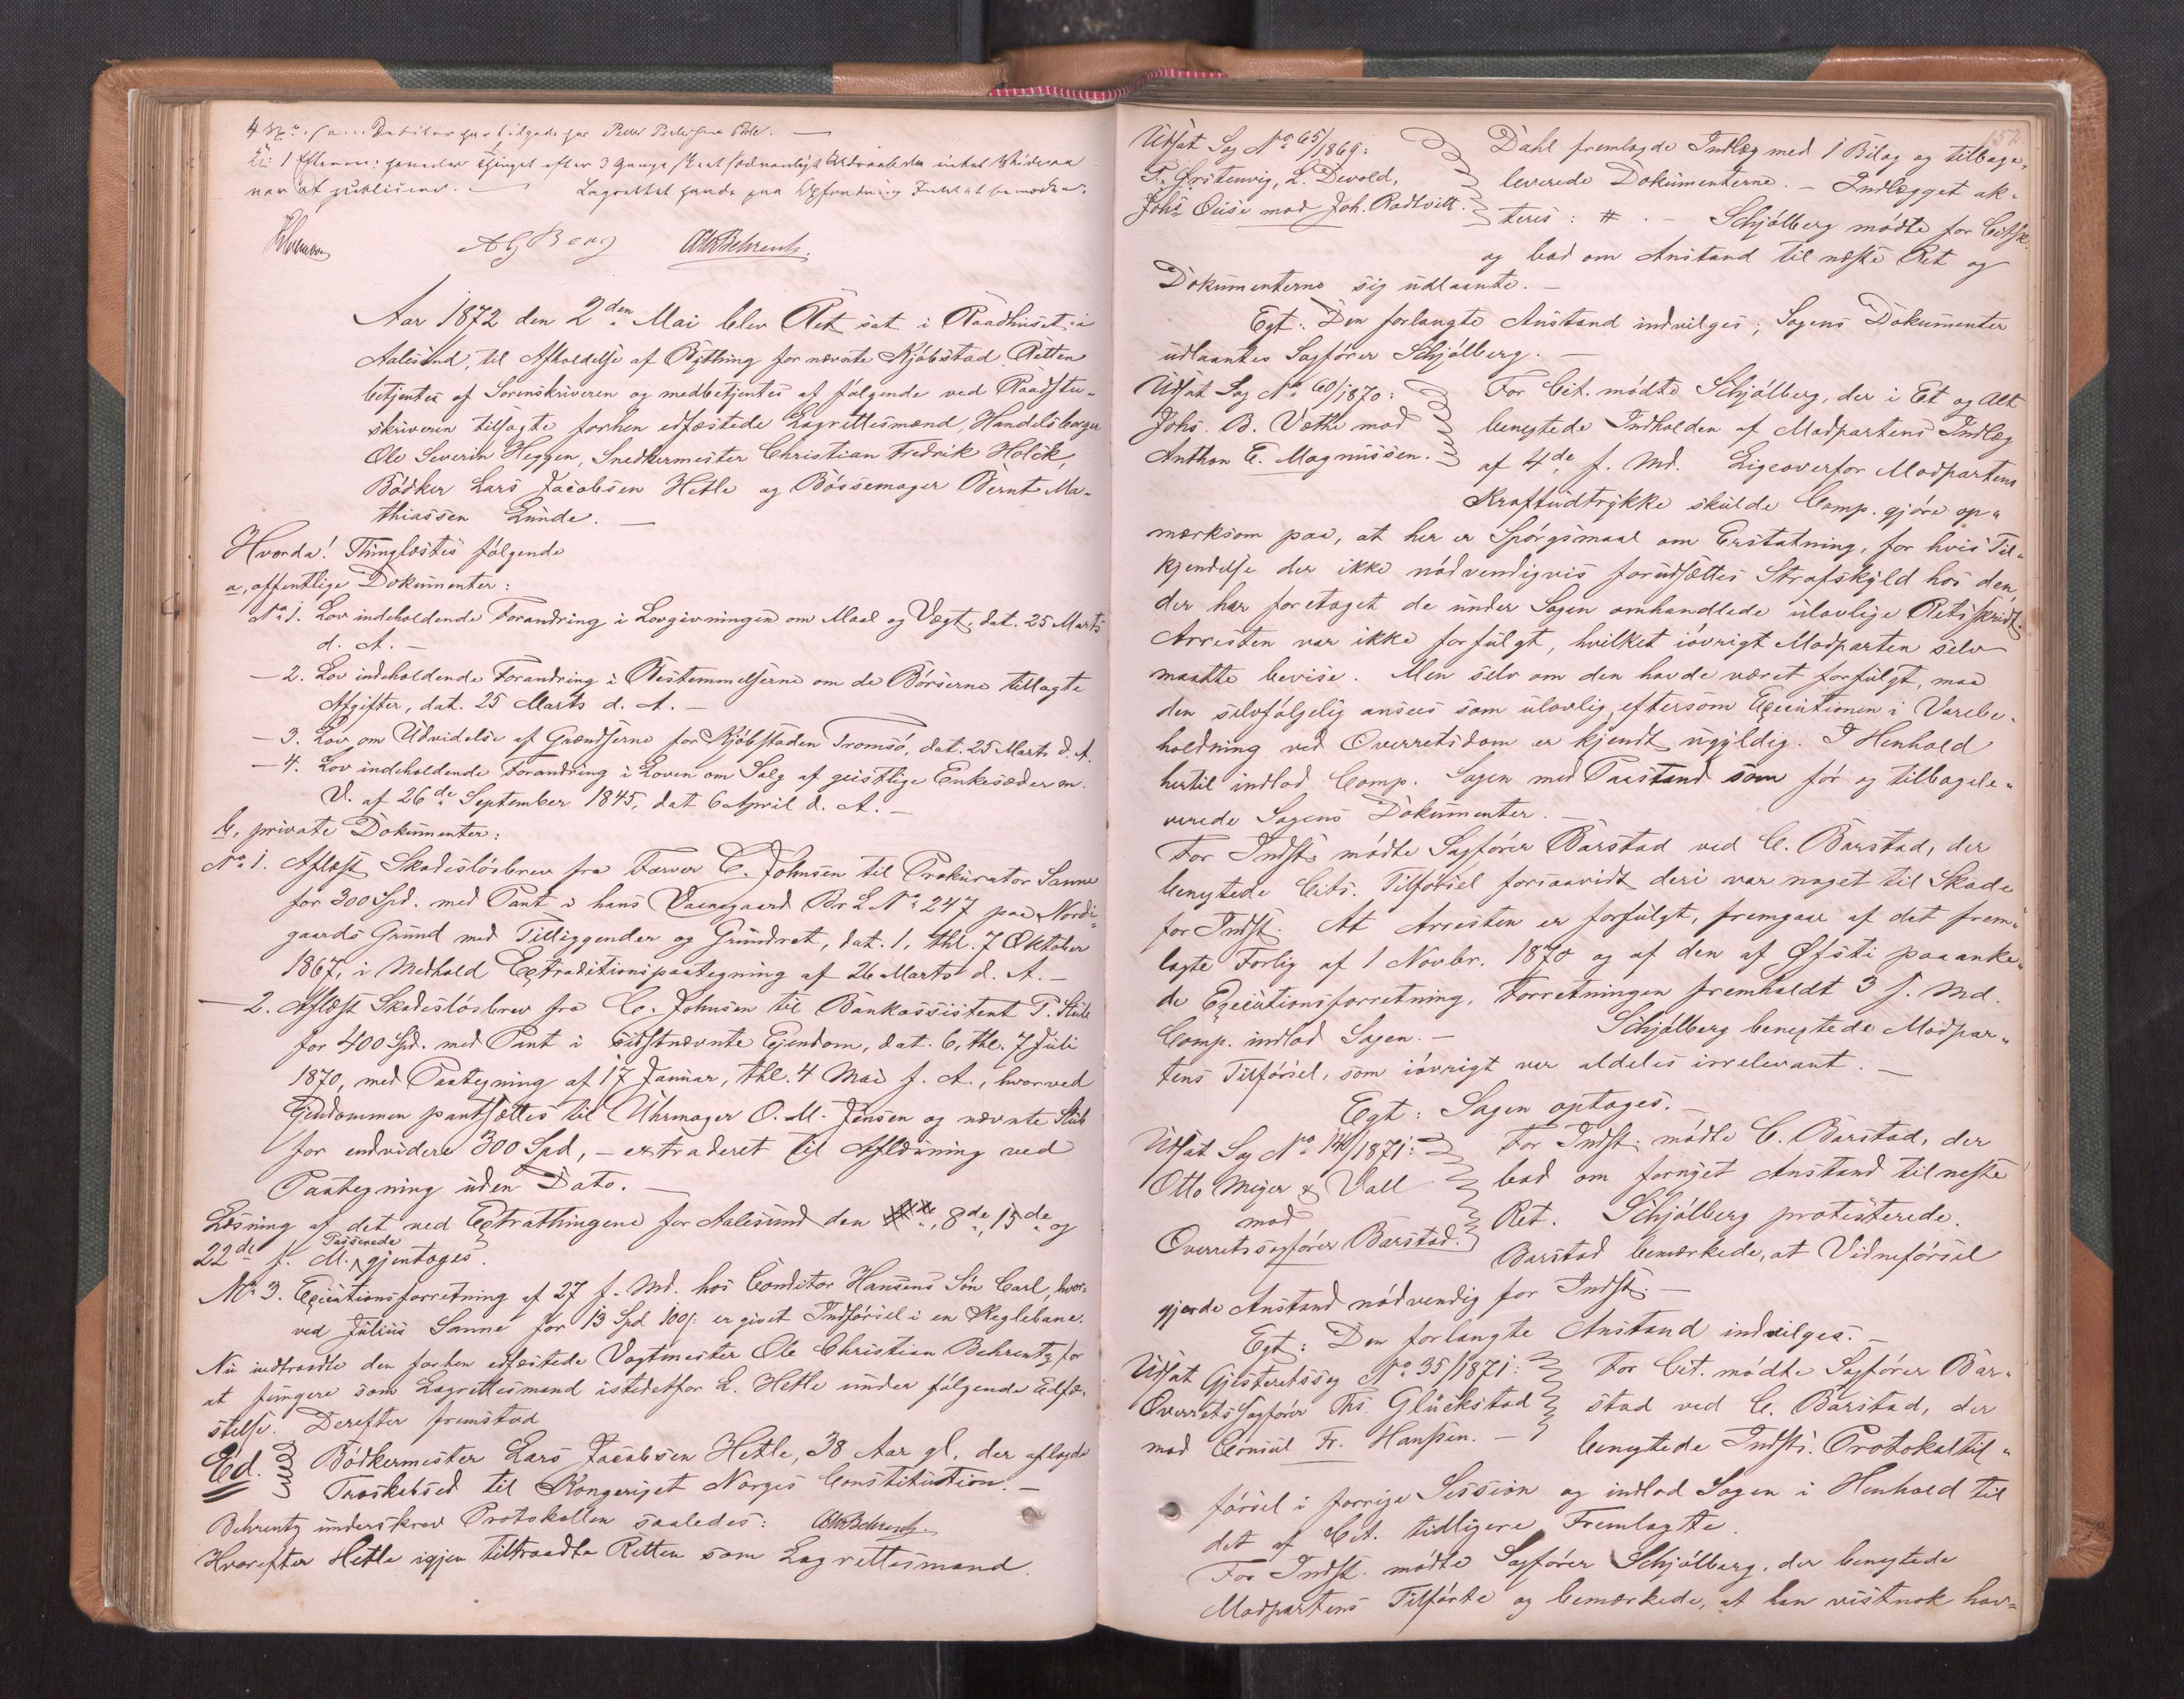 Aar 1872 den 2den Mai blev Ret sat i Raadhuset i
Aalesund, til Afholdelse af Bything for nævnte Kjøbstad. Retten
betjentes af Sorenskriveren og medbetjentes af følgende ved Raadstu-
skriveren tilsagte forhen edfæstede Lagrettesmænd, Handelsborger
Ole Severin Heggen, Snedkermester Christian Fredrik Holck,
Bødker Lars Jacobsen Hetle og Bøssemager Bernt Ma-
thiassen Lunde. —
Hvorda! Thinglæstes følgende
a, offentlige Dokumenter:
No 1. Lov indeholdende Forandring i Lovgivningen om Maal og Vægt, dat. 25 Marts
d. A. —
— 2. Lov indeholdende Forandring i Bestemmelserne om de Børserne tillagte
Afgifter, dat. 25 Marts d. A. —
— 3. Lov om Udvidelse af Grændserne for Kjøbstaden Tromsø, dat. 25 Marts d. A.
— 4. Lov indeholdende Forandring i Loven om Salg af geistlige Enkesæder m.
V. af 26de September 1845, dat 6 April d. A. —
b, private Dokumenter:
No 1. Aflæst Skadesløsbrev fra Farver C. Johnsen til Prokurator Sanne
for 300 Spd. med Pant i hans Vaanegaard Br L No 247 paa Nordi-
gaards Grund med Tilliggender og Grundret, dat. 1, thl. 7 Oktober
1867, i Medhold Extraditionspaategning af 26 Marts d. A. —
— 2. Aflæst Skadesløsbrev fra C. Johnsen til Bankassistent P. Stub
for 400 Spd. med Pant i sidstnævnte Eiendom, dat. 6, thl. 7 Juli
1870, med Paategning af 17 Januar, thl. 4 Mai f. A., hvorved
Eiendommen pantsættes til Uhrmager O. M. Jensen og nævnte Stub
for endvidere 300 Spd, — extraderet til Aflæsning ved
Paategning uden Dato. —
Læsning af det ved Extrathingene for Aalesund den 8de, 15de og
22de f. M. Passerede gjentoges.
No 3. Executionsforretning af 27 f. Md. hos Conditor Hansens Søn Carl, hvor-
ved Julius Sanne for 13 Spd 100 s er givet Indførsel i en Keglebane.
Nu indtraadte den forhen edfæstede Vagtmester Ole Christian Behrentz for
at fungere som Lagrettesmand istedetfor L. Hetle under følgende Edfæ-
stelse. Derefter fremstod
Ed. Bødkermester Lars Jacobsen Hetle, 38 Aar gl. der aflagde
Troskabsed til Kongeriget Norges Constitution. —
Behrentz underskrev Protokollen saaledes:
Hvorefter Hetle igjen tiltraadte Retten som Lagrettesmand.
152
Udsat Sag No 65/1869:
L. Devold,
mod Joh. Rodtvitt.
Dahl fremlagde Indlæg med 1 Bilag og tilbage-
leverede Dokumenterne. — Indlægget ak-
teres: # . — Schjølberg mødte for Citsk.
og bad om Anstand til næste Ret og
Dokumenterne sig udlaante. —
Egt: Den forlangte Anstand indvilges; Sagens Dokumenter
udlaantes Sagfører Schjølberg. —
Udsat Sag No 60/1870:
Johs. B. Vatne mod
Anthon E. Magnussen.
For Cit. mødte Schjølberg, der i Et og Alt
benegtede Indholden af Modpartens Indlæg
af 4de f. Md. Ligeoverfor Modpartens
Kraftudtrykke skulde Comp. gjøre op-
mærksom paa, at her er Spørgsmaal om Erstatning, for hvis Til-
kjendelse der ikke nødvendigvis forudsættes Strafskyld hos den,
der har foretaget de under Sagen omhandlede ulovlige Retsskridt.
Arresten var ikke forfulgt, hvilket iøvrigt Modparten selv
maatte bevise. Men selv om den havde været forfulgt, maa
den selvfølgelig ansees som ulovlig, eftersom Executionen i Varebe-
holdning ved Overretsdom er kjendt ugyldig. I Henhold
hertil indlod Comp. Sagen med Paastand som før og tilbagele-
verede Sagens Dokumenter. —
For Indst. mødte Sagfører Barstad ved C. Barstad, der
benegtede Cits. Tilførsel forsaavidt deri var noget til Skade
for Indst. At Arresten er forfulgt, fremgaar af det frem-
lagte Forlig af 1 Novbr. 1870 og af den af Øfsti paaanke-
de Executionsforretning, Forretningen fremholdt 3 f. Md.
Comp. indlod Sagen. — Schjølberg benegtede Modpar-
tens Tilførsel, som iøvrigt var aldeles irrelevant. —
Egt: Sagen optages. —
Udsat Sag No 14/1871:
Otto Meyer & Vall
mod
Overretssagfører Barstad.
For Indst. mødte C. Barstad, der
bad om fornyet Anstand til næste
Ret. Schjølberg protesterede.
Barstad bemærkede, at Vidneførsel
gjorde Anstand nødvendig for Indst. —
Egt: Den forlangte Anstand indvilges. —
Udsat Gjesteretssag No 35/1871:
Overretssagfører Ths. Glückstad
mod Consul Fr. Hanssen. —
For Cit. mødte Sagfører Bar-
stad ved C. Barstad, der
benegtede Indsts. Protokoltil-
førsel i forrige Session og indlod Sagen i Henhold til
det af Cit. tidligere Fremlagte.
For Indst. mødte Sagfører Schjølberg, der benegtede
Modpartens Tilførte og bemærkede, at han vistnok hav-